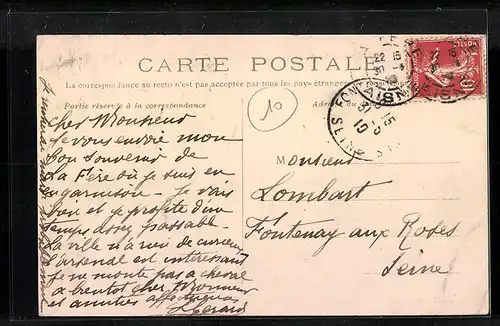 CARTE POSTALE
La correspondance au recto n'est pas acceptée par tous les pays étrangers
Partie réservée à la correspondance
Adresse du
10
cher Monsieur
je vous envoie mon
bon souvenir de
La Fère où je suis en
garnison - je vais
bien et je profite d'un
temps assez passable -
La ville n'a rien de curieux
l'arsenal est intéressant
je ne monte pas a cheval
a bientot cher Monsieur
et amitiés affectueuses
Gérard
Monsieur
Lombart
Fontenay aux Roses
Seine